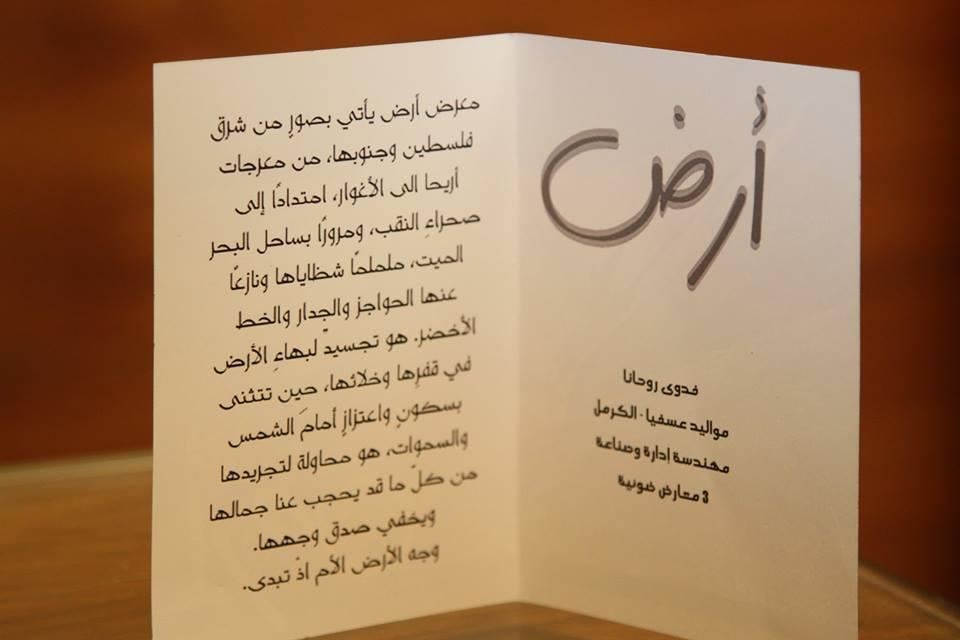 أرض
فدوى روحانا
مواليد عسفيا - الكرمل
مهندسة إدارة وصناعة
3 معارض ضوئية
معرض أرض يأتي بصورٍ من شرق
فلسطين وجنوبها، من معرجات
أريحا الى الأغوار، امتدادًا إلى
صحراءِ النقب، ومرورًا بساحل البحر
الميت، ململمًا شظاياها ونازعًا
عنها الحواجز والجدار والخط
الأخضر. هو تجسيدٌ لبهاءِ الأرض
في قفرِها وخلائها، حين تتثنى
بسكونٍ واعتزازٍ أمامَ الشمس
والسموات، هو محاولة لتجريدها
من كلّ ما قد يحجب عنا جمالها
ويخفي صدق وجهها.
وجه الأرض الأم اذْ تبدى.